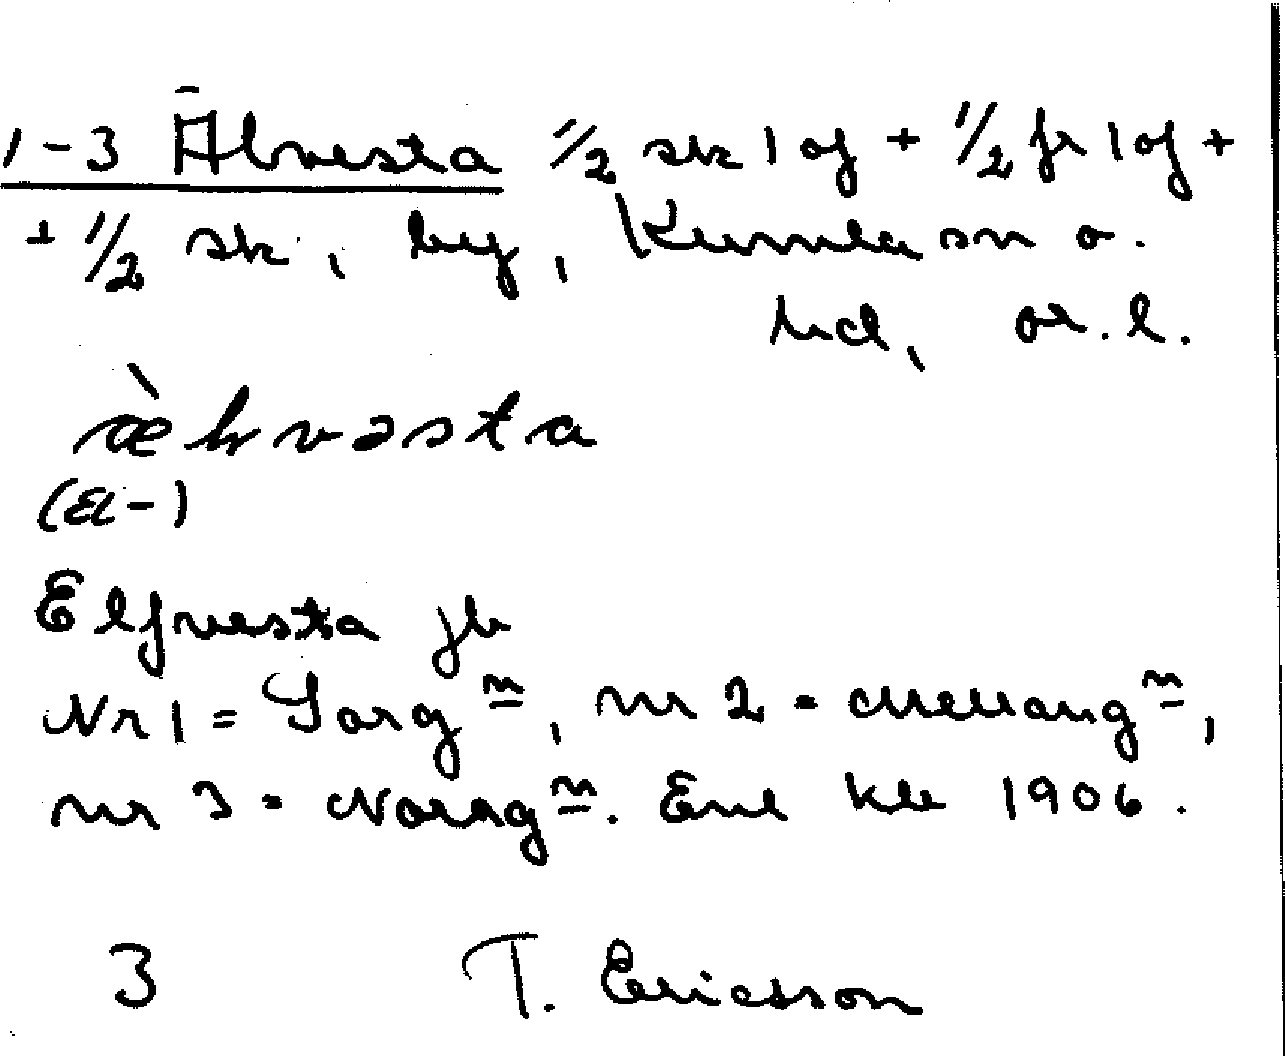 1-3 Älvesta 1/2 sk 1 of + 1/2 fr 1 of +
+ 1/2 sk, by, Kumla sn o.
hd, ör. l.
(El-)
Elfvesta jb
Nr 1 = Sörg n, nr 2 = Mellang n,
nr 3 = Norrg n. Enl kk 1906.
3 T. Ericsson